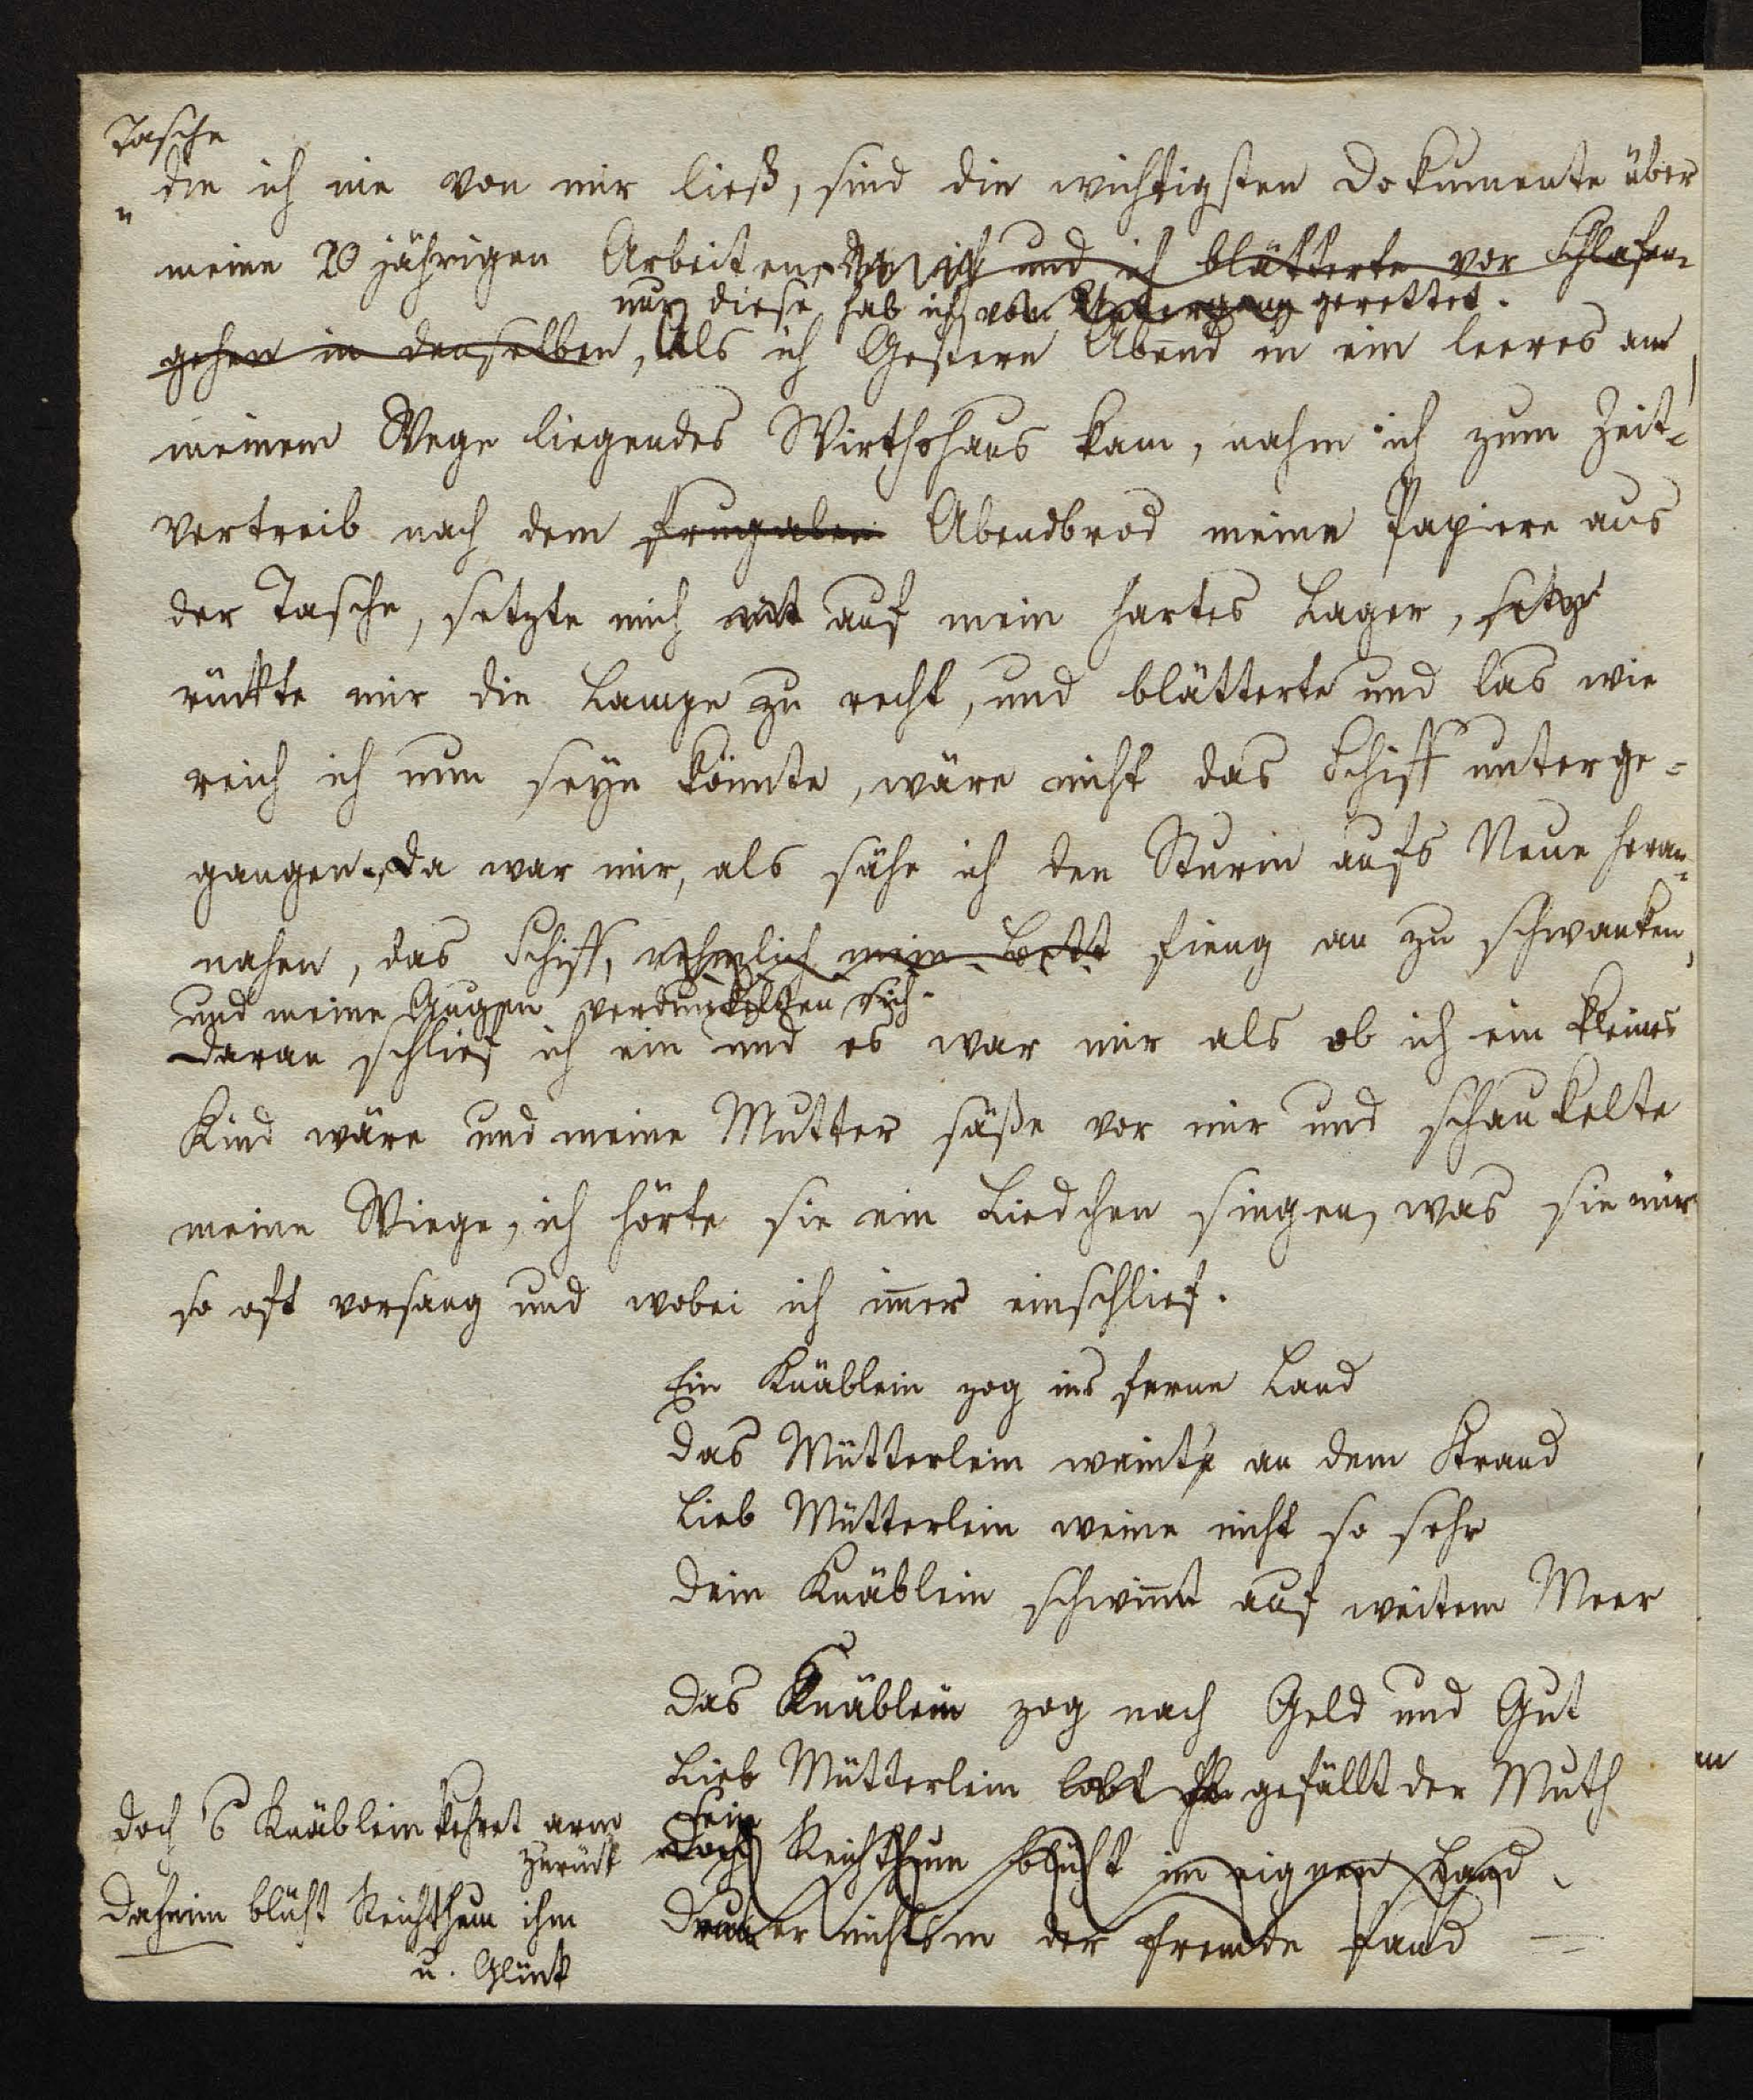 Tasche
die ich nie von mir ließ, sind die wichtigsten Dokumente über
meine 20 jährigen Arbeiten, und ich blätterte vor Schlafen-
nur diese hab ich vom Untergang gerettet.
gehen in denselben, Als ich Gestern Abend in ein leeres am
meinem Wege liegendes Wirthshaus kam, nahm ich zum Zeit-
vertreib nach dem frugalen Abendbrod meine Papiere aus
der Tasche, setzte mich mit auf mein hartes Lager, setzt
rückte mir die Lampe zu recht, und blätterte und las wie
reich ich nun seyn könnte, wäre nicht das Schiff unterge-
gangen. Da war mir, als sähe ich den Sturm aufs Neue heran-
nahen, das Schiff, nehmlich mein Bett fieng an zu schwanken,
und meine Augen verdunkelten sich.
daran schlief ich ein und es war mir als ob ich ein kleines
Kind wäre und meine Mutter säße vor mir und schaukelte
meine Wiege, ich hörte sie ein Liedchen singen, was sie mir
so oft vorsang und wobei ich im̄er einschlief.
Ein Knäblein zog ins ferne Land
Das Mütterlein weinte an dem Strand
Lieb Mütterlein weine nicht so sehr
Dein Knäblein schwim̄t auf weitem Meer
Das Knäblein zog nach Geld und Gut
Lieb Mütterlein lobt gefällt der Muth
Sein
Doch Reichthum blüht im eignen Land
Drum er nichts in der Fremde fand
Doch 's Knäblein kehret arm
zurück
Daheim blüht Reichthum ihm
u. Glück